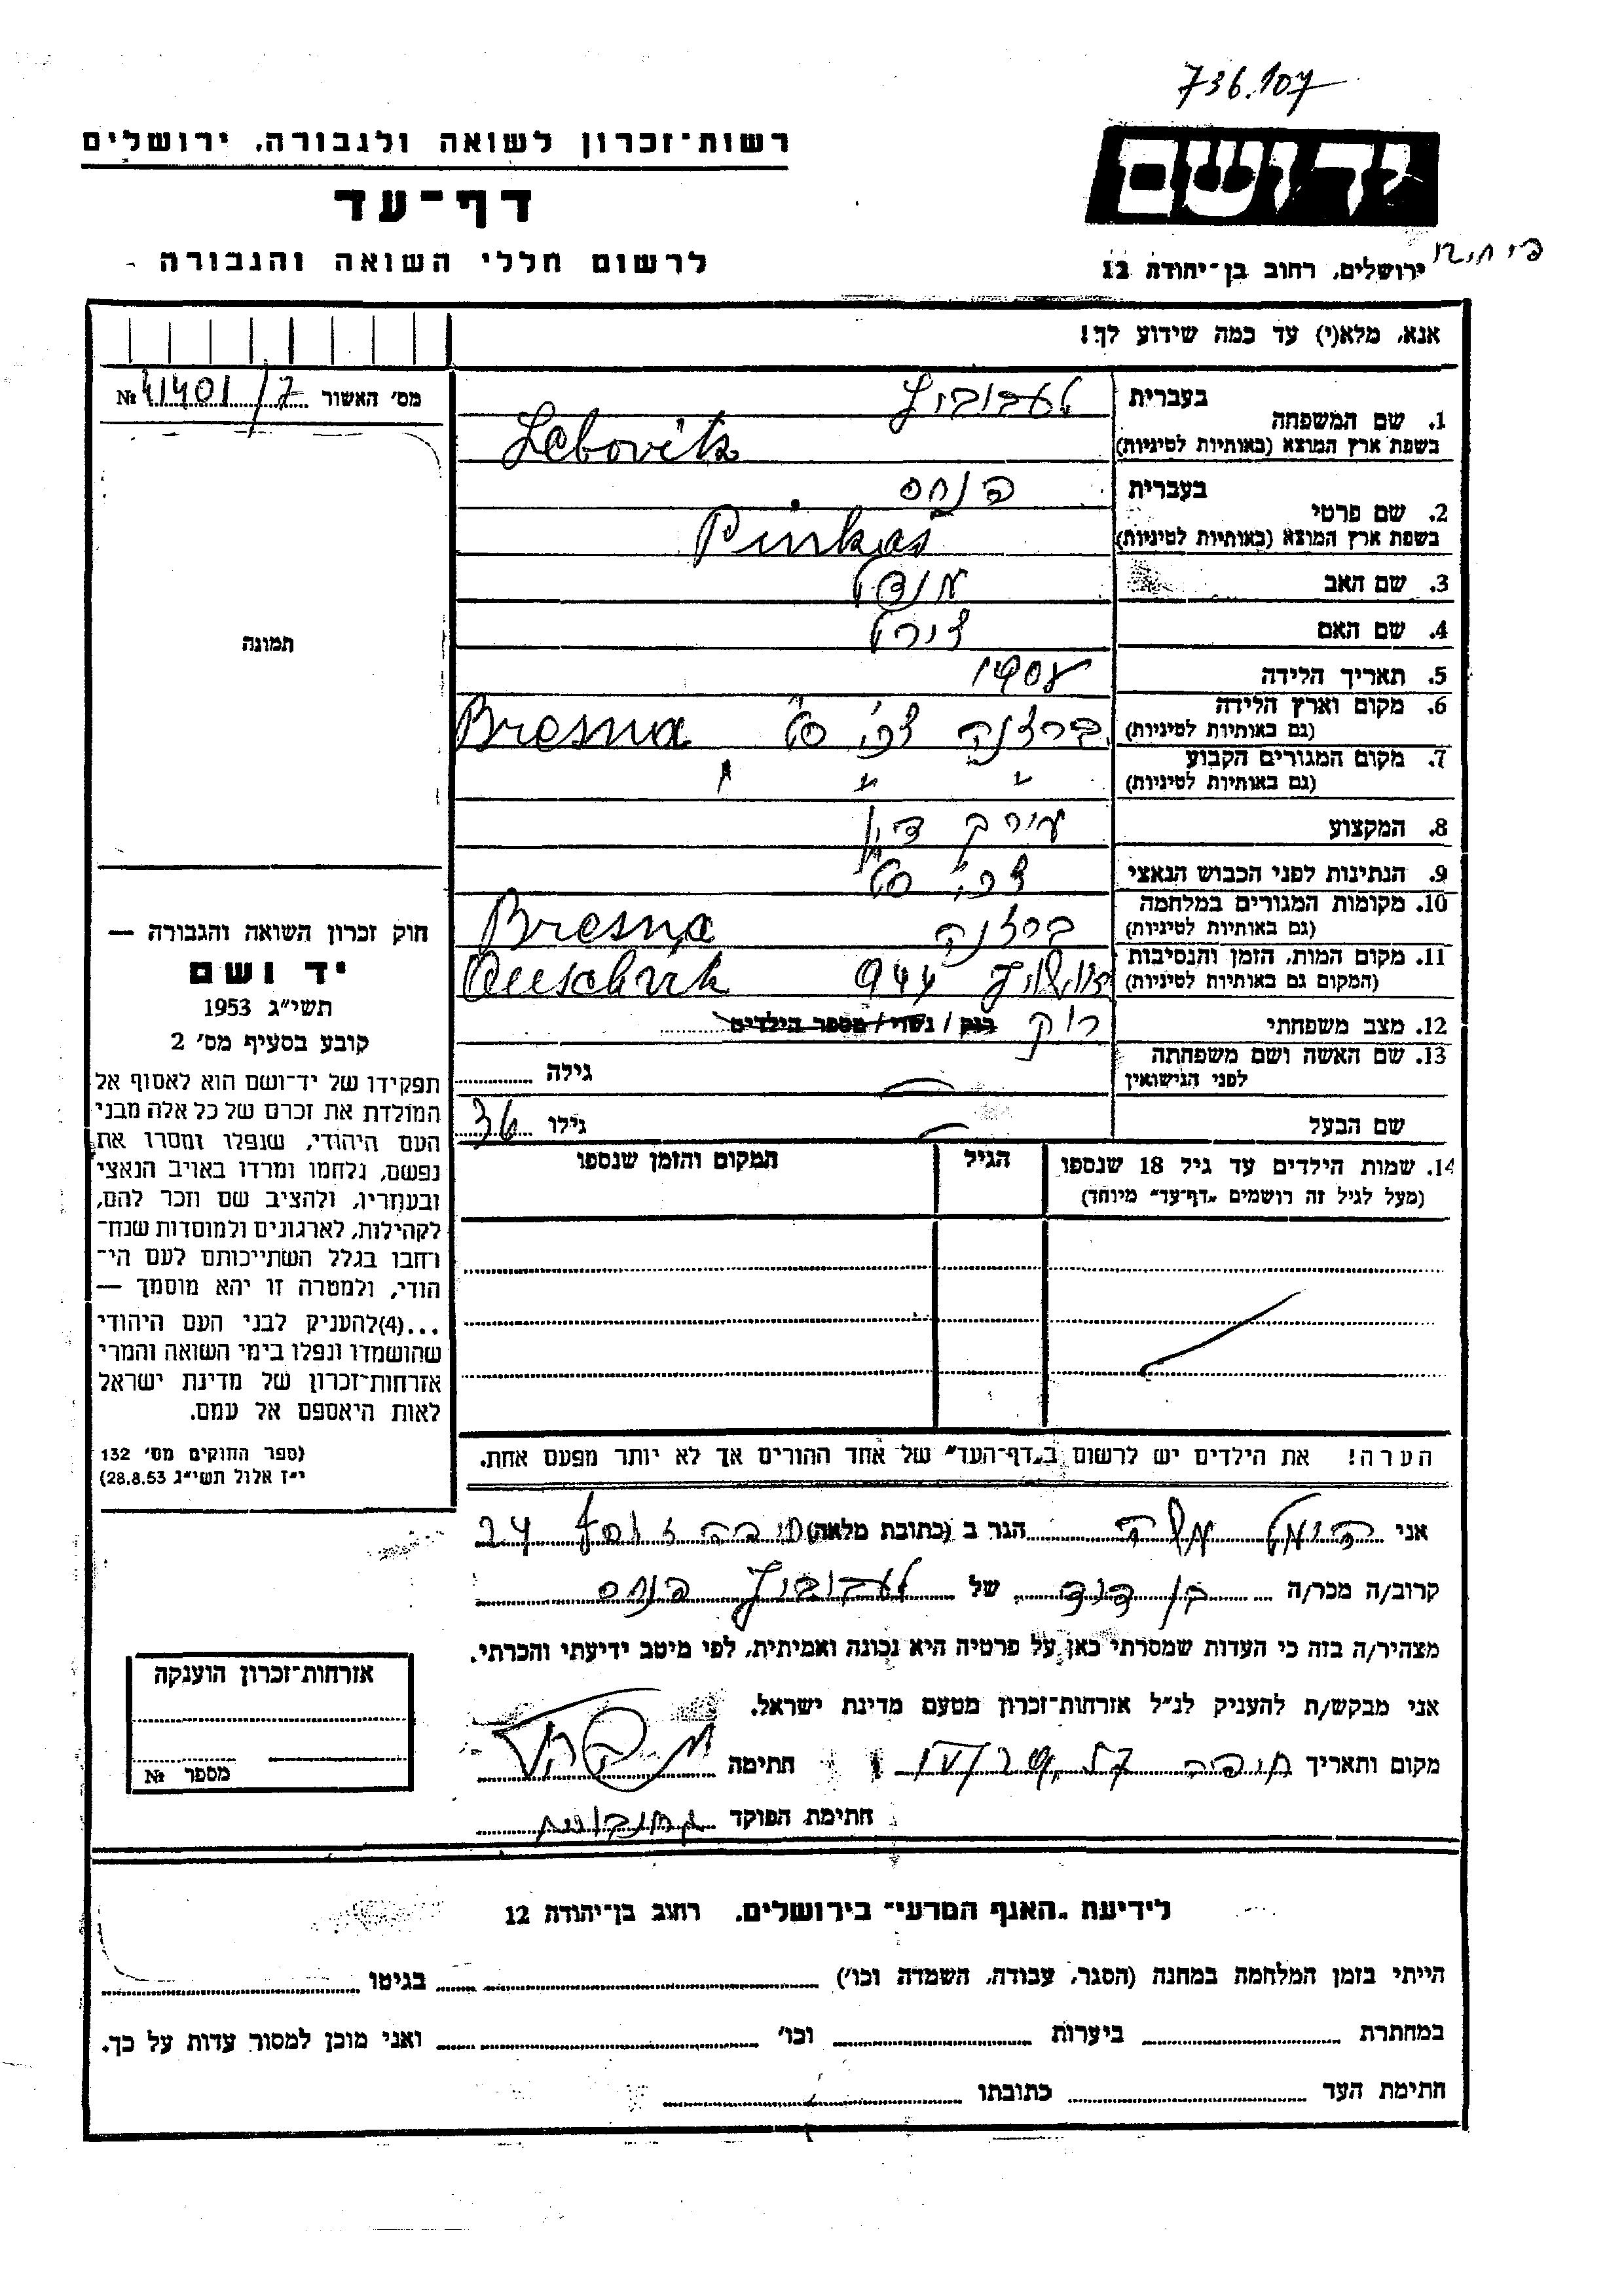 736.107
רשות־זכרון לשואה ולגבורה, ירושלים
דף־עד
לרשום חללי השואה והגבורה
יד ושם
ירושלים, רחוב בן־יהודה 12
אנא, מלא(י) עד כמה שידוע לך!
מס׳ האשור № 41401/7
תמונה
1. שם המשפחה בעברית לעבוביץ
בשפת ארץ המוצא (באותיות לטיניות) Lebovits
2. שם פרטי בעברית פנחס
בשפת ארץ המוצא (באותיות לטיניות) Pinkas
3. שם האב
4. שם האם
5. תאריך הלידה 1908
6. מקום וארץ הלידה (גם באותיות לטיניות) ברזנה צכ׳ סל׳ Bresna
7. מקום המגורים הקבוע (גם באותיות לטיניות) " " "
8. המקצוע עורך דין
9. הנתינות לפני הכבוש הנאצי צכ׳ סל׳
10. מקומות המגורים במלחמה (גם באותיות לטיניות) ברזנה Bresna
11. מקום המות, הזמן והנסיבות (המקום גם באותיות לטיניות) 944 Auschvitz
12. מצב משפחתי רוק רוק / נשוי / מספר הילדים
13. שם האשה ושם משפחתה לפני הנישואין גילה
שם הבעל גילו 36
14. שמות הילדים עד גיל 18 שנספו הגיל המקום והזמן שנספו
(מעל לגיל זה רושמים „דף־עד״ מיוחד)
הערה! את הילדים יש לרשום ב„דף־העד״ של אחד ההורים אך לא יותר מפעם אחת.
חוק זכרון השואה והגבורה —
יד ושם
תשי״ג 1953
קובע בסעיף מס׳ 2
תפקידו של יד־ושם הוא לאסוף אל
המולדת את זכרם של כל אלה מבני
העם היהודי, שנפלו ומסרו את
נפשם, נלחמו ומרדו באויב הנאצי
ובעוזריו, ולהציב שם וזכר להם,
לקהילות, לארגונים ולמוסדות שנח־
רחבו בגלל השתייכותם לעם הי־
הודי, ולמטרה זו יהא מוסמך —
...(4)להעניק לבני העם היהודי
שהושמדו ונפלו בימי השואה והמרי
אזרחות־זכרון של מדינת ישראל
לאות היאספם אל עמם.
(ספר החוקים מס׳ 132
י״ז אלול תשי״ג 28.8.53)
אני משה הגר ב (כתובת מלאה) 24
קרוב/ה מכר/ה בן דוד של לעבוביץ פנחס
מצהיר/ה בזה כי העדות שמסרתי כאן על פרטיה היא נכונה ואמיתית, לפי מיטב ידיעתי והכרתי.
אני מבקש/ת להעניק לנ״ל אזרחות־זכרון מטעם מדינת ישראל.
מקום ותאריך חיפה חתימה
חתימת הפוקד
אזרחות־זכרון הוענקה
מספר №
לידיעת „האגף המדעי״ בירושלים, רחוב בן־יהודה 12
הייתי בזמן המלחמה במחנה (הסגר, עבודה, השמדה וכו׳) בגיטו
במחתרת ביערות וכו׳ ואני מוכן למסור עדות על כך.
חתימת העד כתובתו